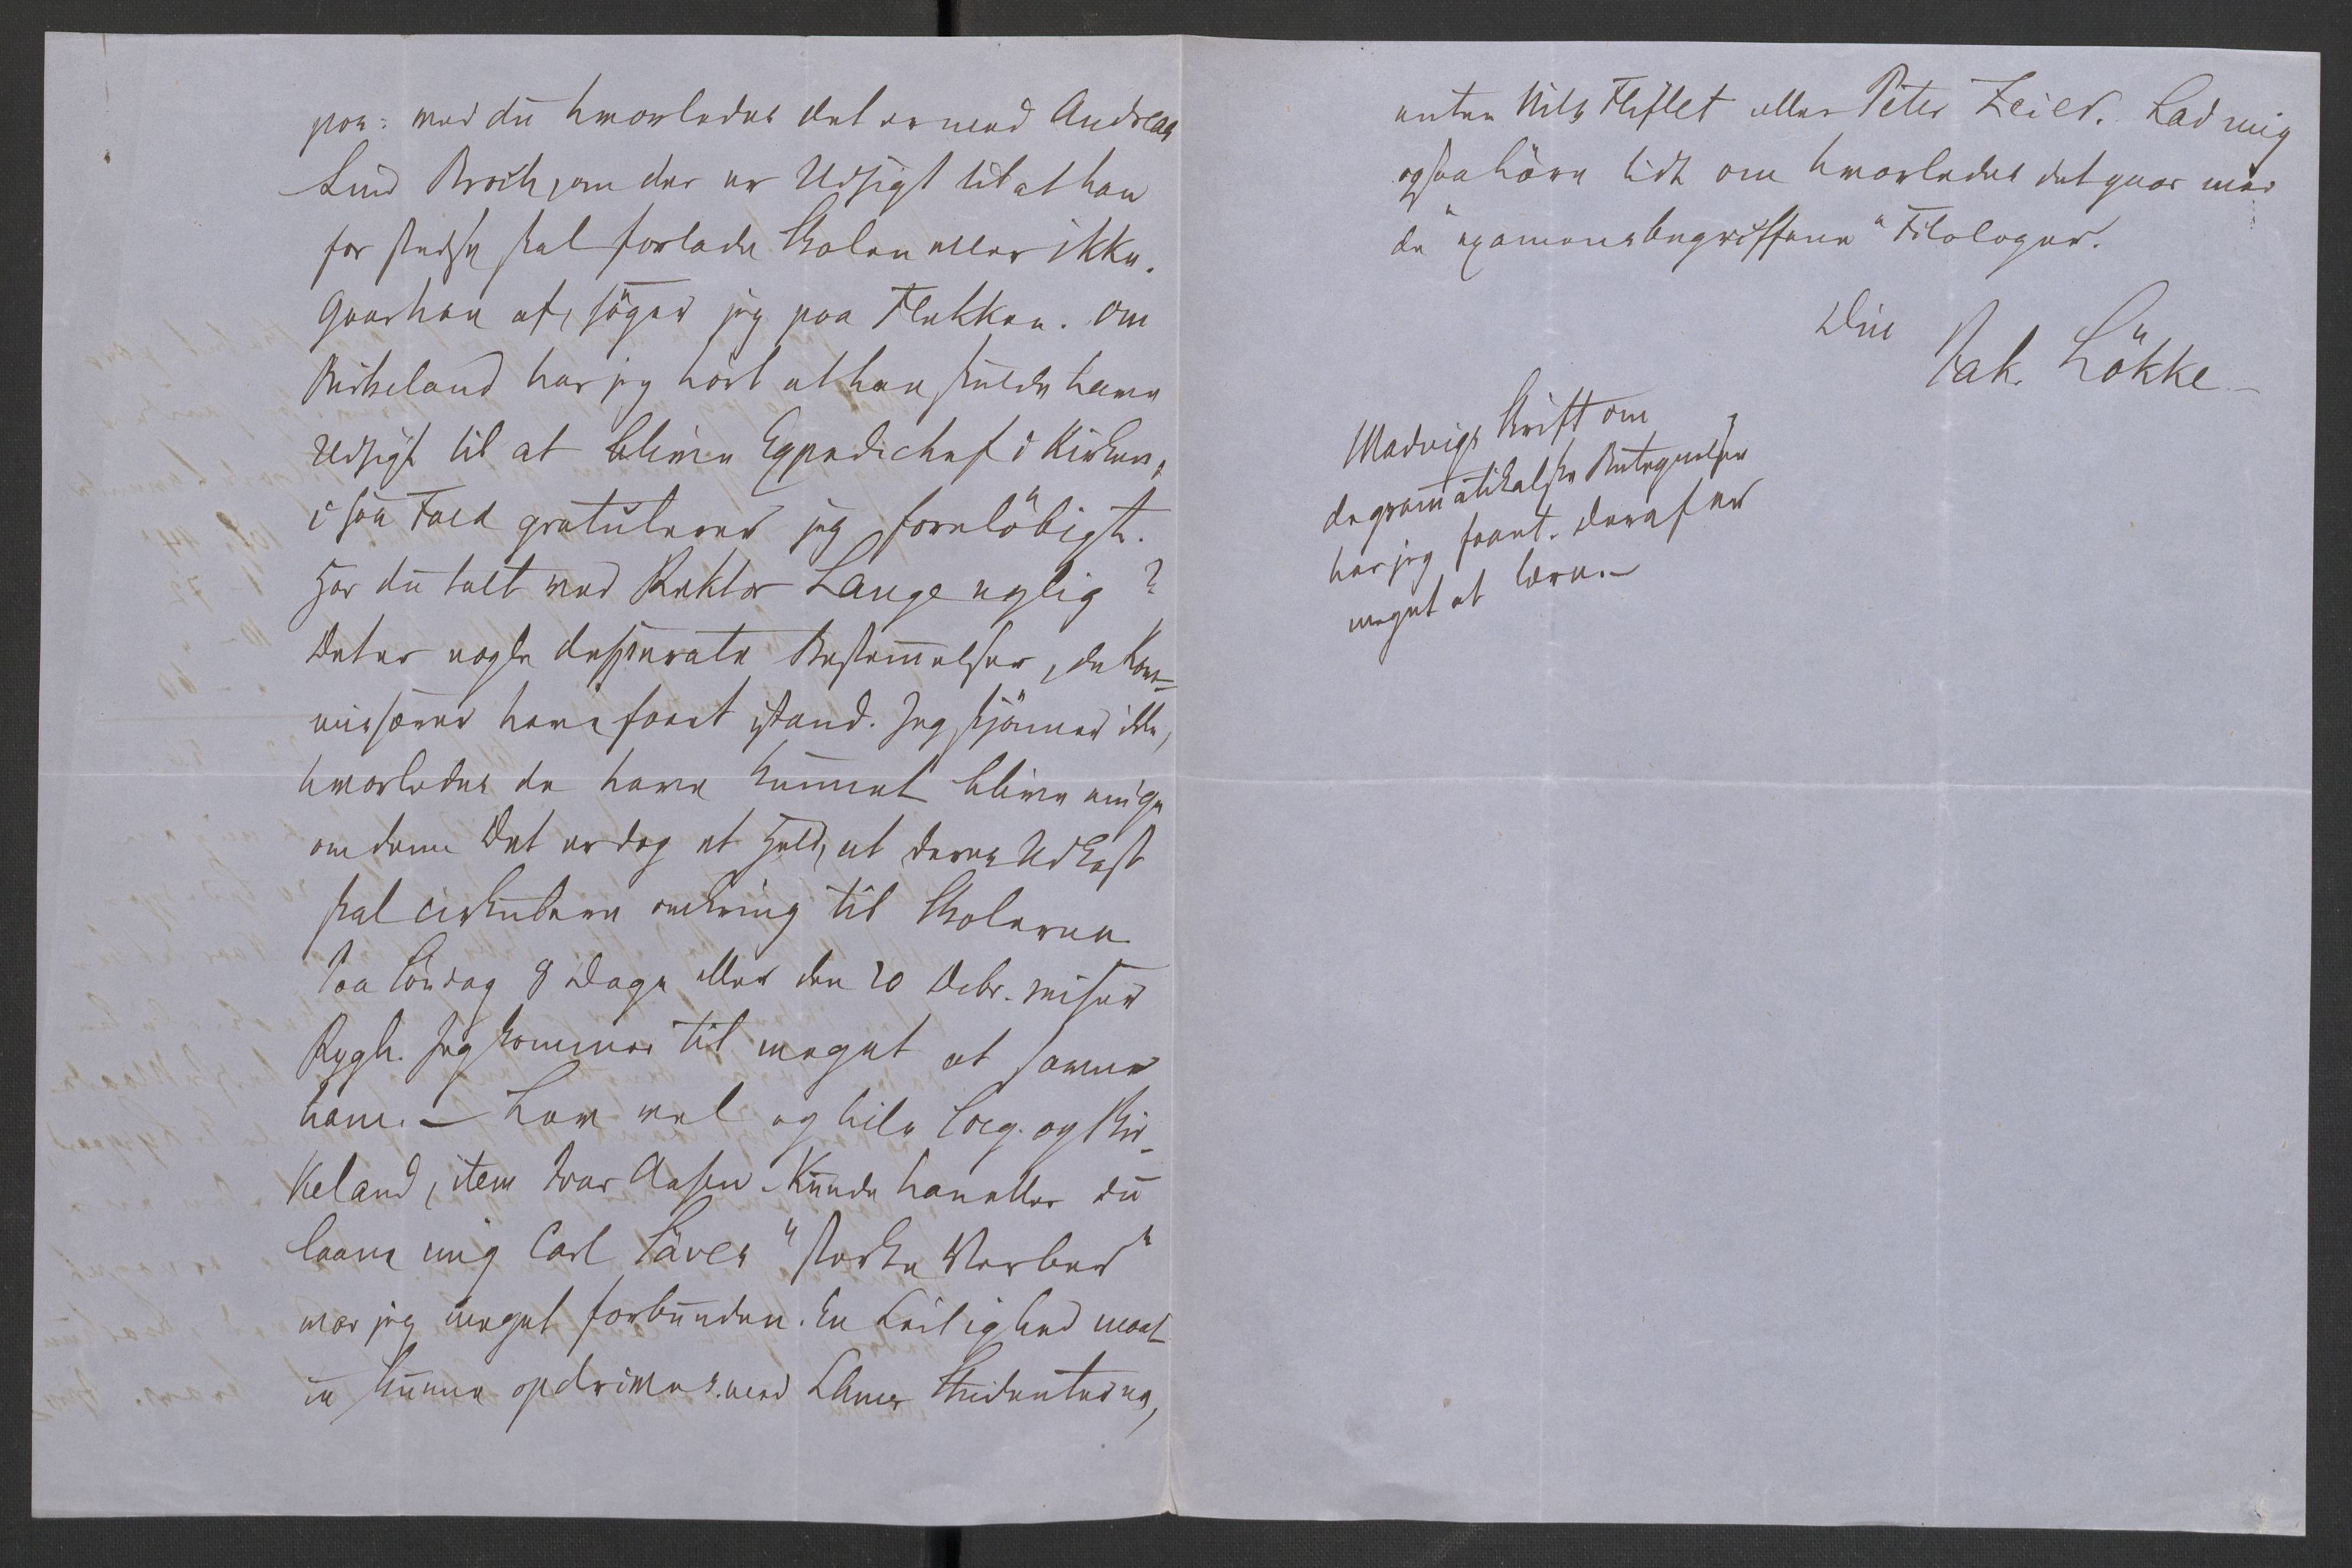 paa: ved du hvorledes det er med Andreas
Lund Broch, om der er Udsigt til at han
for stedse skal forlade Skolen eller ikke.
Gaar han af, söger jeg paa Flekken. Om
Birkeland har jeg hört at han skulde have
Udsigt til at blive Expedichef i Kirken,
i saa Fald gratulerer jeg foreløbigt.
Har du talt med Rektor Lange nylig?
Det er nogle desperate Bestemmelser, de Kom-
missærer have faaet istand. Jeg skjönner ikke,
hvorledes de have kunnet blive enige
om dem Det er dog et Held, at deres Udkast
skal cirkulere omkring til Skolerne.
Paa Söndag 8 Dage eller den 20 Debr. reiser
Rygh. Jeg kommer til meget at savne
ham. – Lev vel og hils Löcg. og Bir-
keland, item Ivar Aasen. Kunde han eller du
laane mig Carl Säves "starka Verber"
var jeg meget forbunden. En Leilighed maat-
te kunne opdrives med Studenterne,
enten Nils Fliflet eller Peter Zeier. Lad mig
ogsaa höre lidt om hvorledes det gaar med
de "examensbegriffene" Filologer.
Din
Jak. Lökke –
Madvigs Skrift om
de grammatikalske Betegnelser
har jeg faaet. Deraf er
meget at lære. –